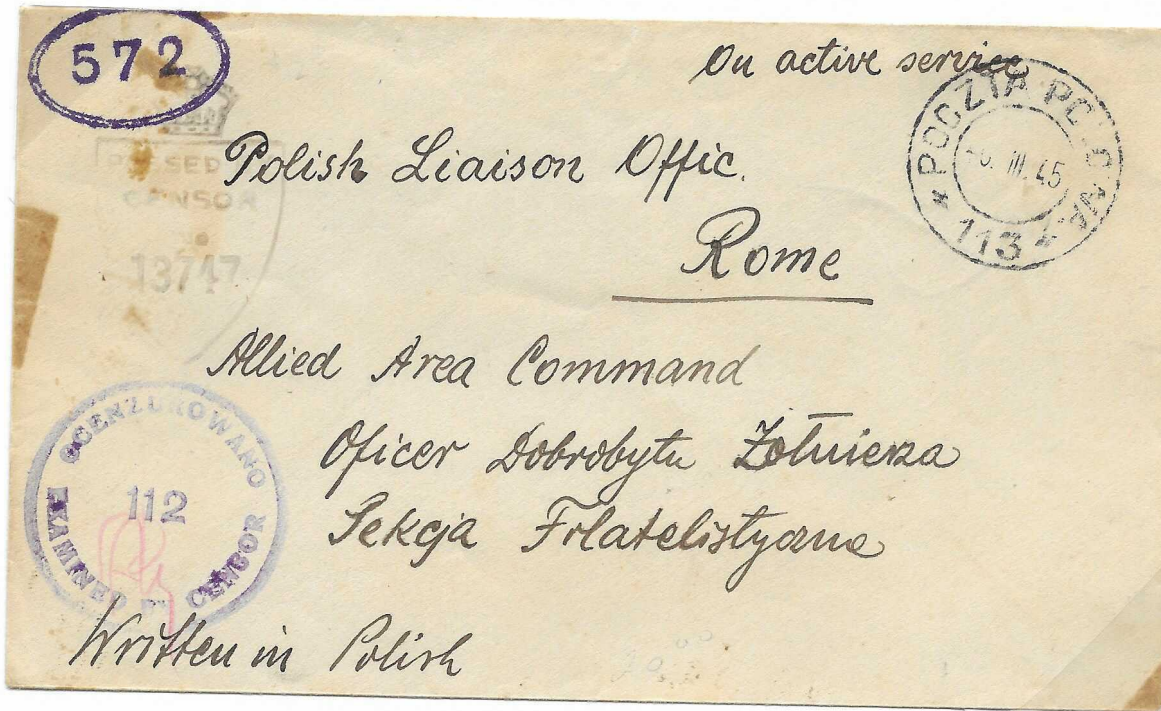 572
On active service
POCZTA POLOWA
-6. III. 45
113
PASSED
CENSOR
13747
Polish Liaison Offic.
Rome
Allied Area Command
Oficer Dobrobytu Żołnierza
Sekcja Filatelistyczna
OCENZUROWANO
112
EXAMINED BY CENSOR
Written in Polish